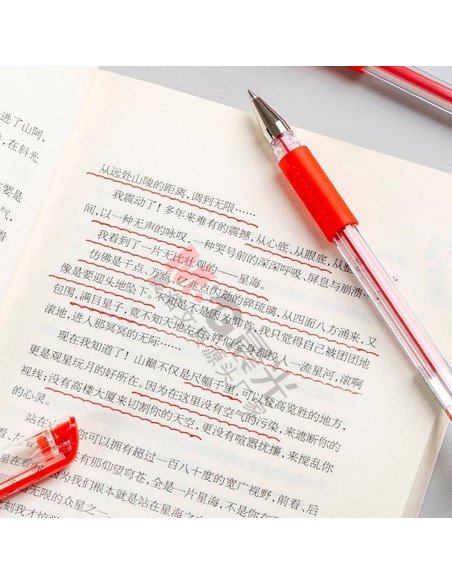 进了山阿，
在斜光
要是
气，
从远处山陵的距离，调到无限……
我震动了！多年来难有的震撼，从心底、从眼底、从整
间，以一种无声的呐喊、一种哭号前的深深呼吸、屏息与崩溃
我看到了一片无比壮观的——星海。
仿佛是千点、万点、亿兆点闪动的碎琉璃，从四面八方涌来，又
像是要迎头地坠下。不知是不是因为仰首，我只觉得自己被团团地
包围，满目星子，竟不知天地左右，好似全身都投入一流星河，滚啊
滚地，进入那冥冥的无际……
现在我知道了！山巅不仅是尺幅千里，可以登高览胜的地方，
更是观星玩月的好所在。因为在这里没有空气的污染，来遮断你的
视线；没有高楼大厦来切割你的天空，更没有喧嚣扰攘，来搅乱你
的心灵。
站在 你可以拥有超过一百八十度的宽广视野，前看、后
看、 有那仰望穹苍，全是一片星海，不是你在
因为我们根本就是站在星海之
无限的众星之一
刻我才惊